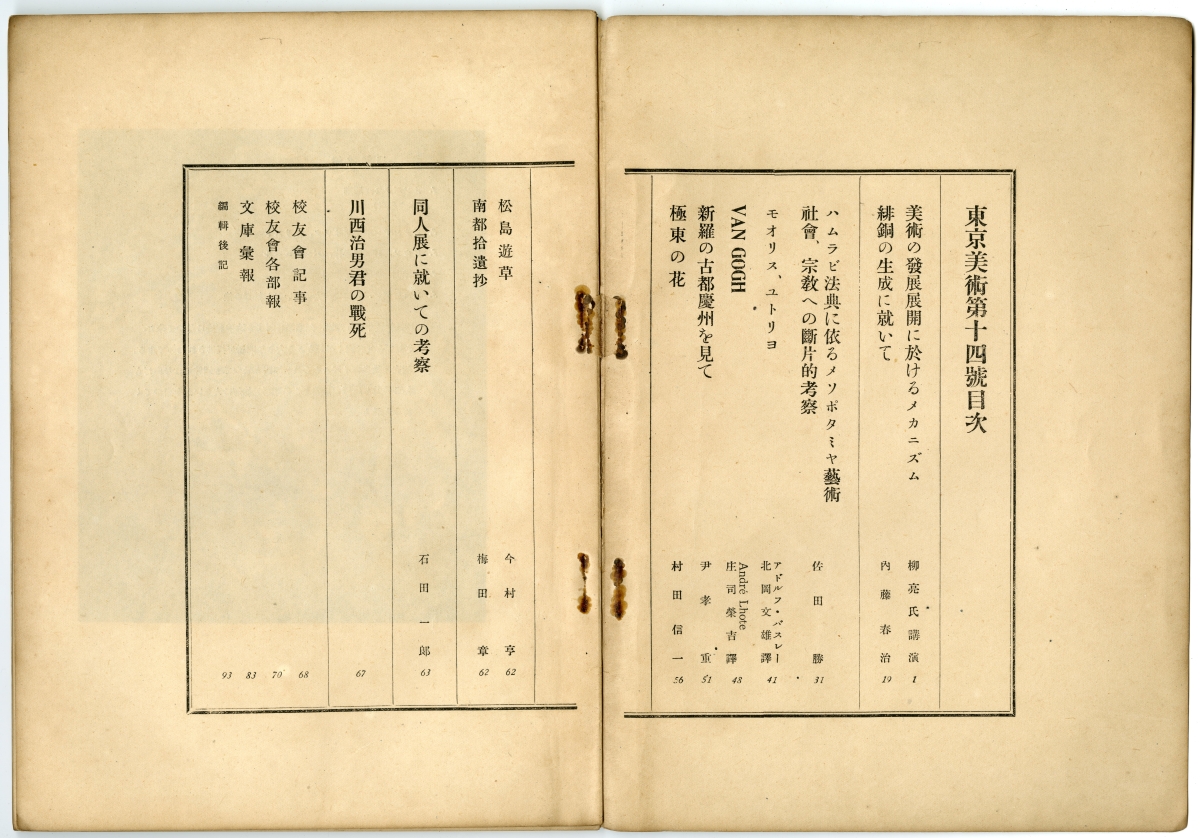 東京美術第十四號目次
美術の發展展開に於けるメカニズム 柳亮氏講演 1
緋銅の生成に就いて 內藤春治 19
ハムラビ法典に依るメソポタミヤ藝術
社會、宗敎への斷片的考察 佐田勝 31
モオリス、ユトリヨ アドルフ・バスレー
北岡文雄譯 41
VAN GOGH André Lhote
庄司榮吉譯 48
新羅の古都慶州を見て 尹孝重 51
極東の花 村田信一 56
松島遊草 今村亨 62
南都拾遺抄 梅田章 62
同人展に就いての考察 石田一郞 63
川西治男君の戰死 67
校友會記事 68
校友會各部報 70
文庫彙報 83
編輯後記 93